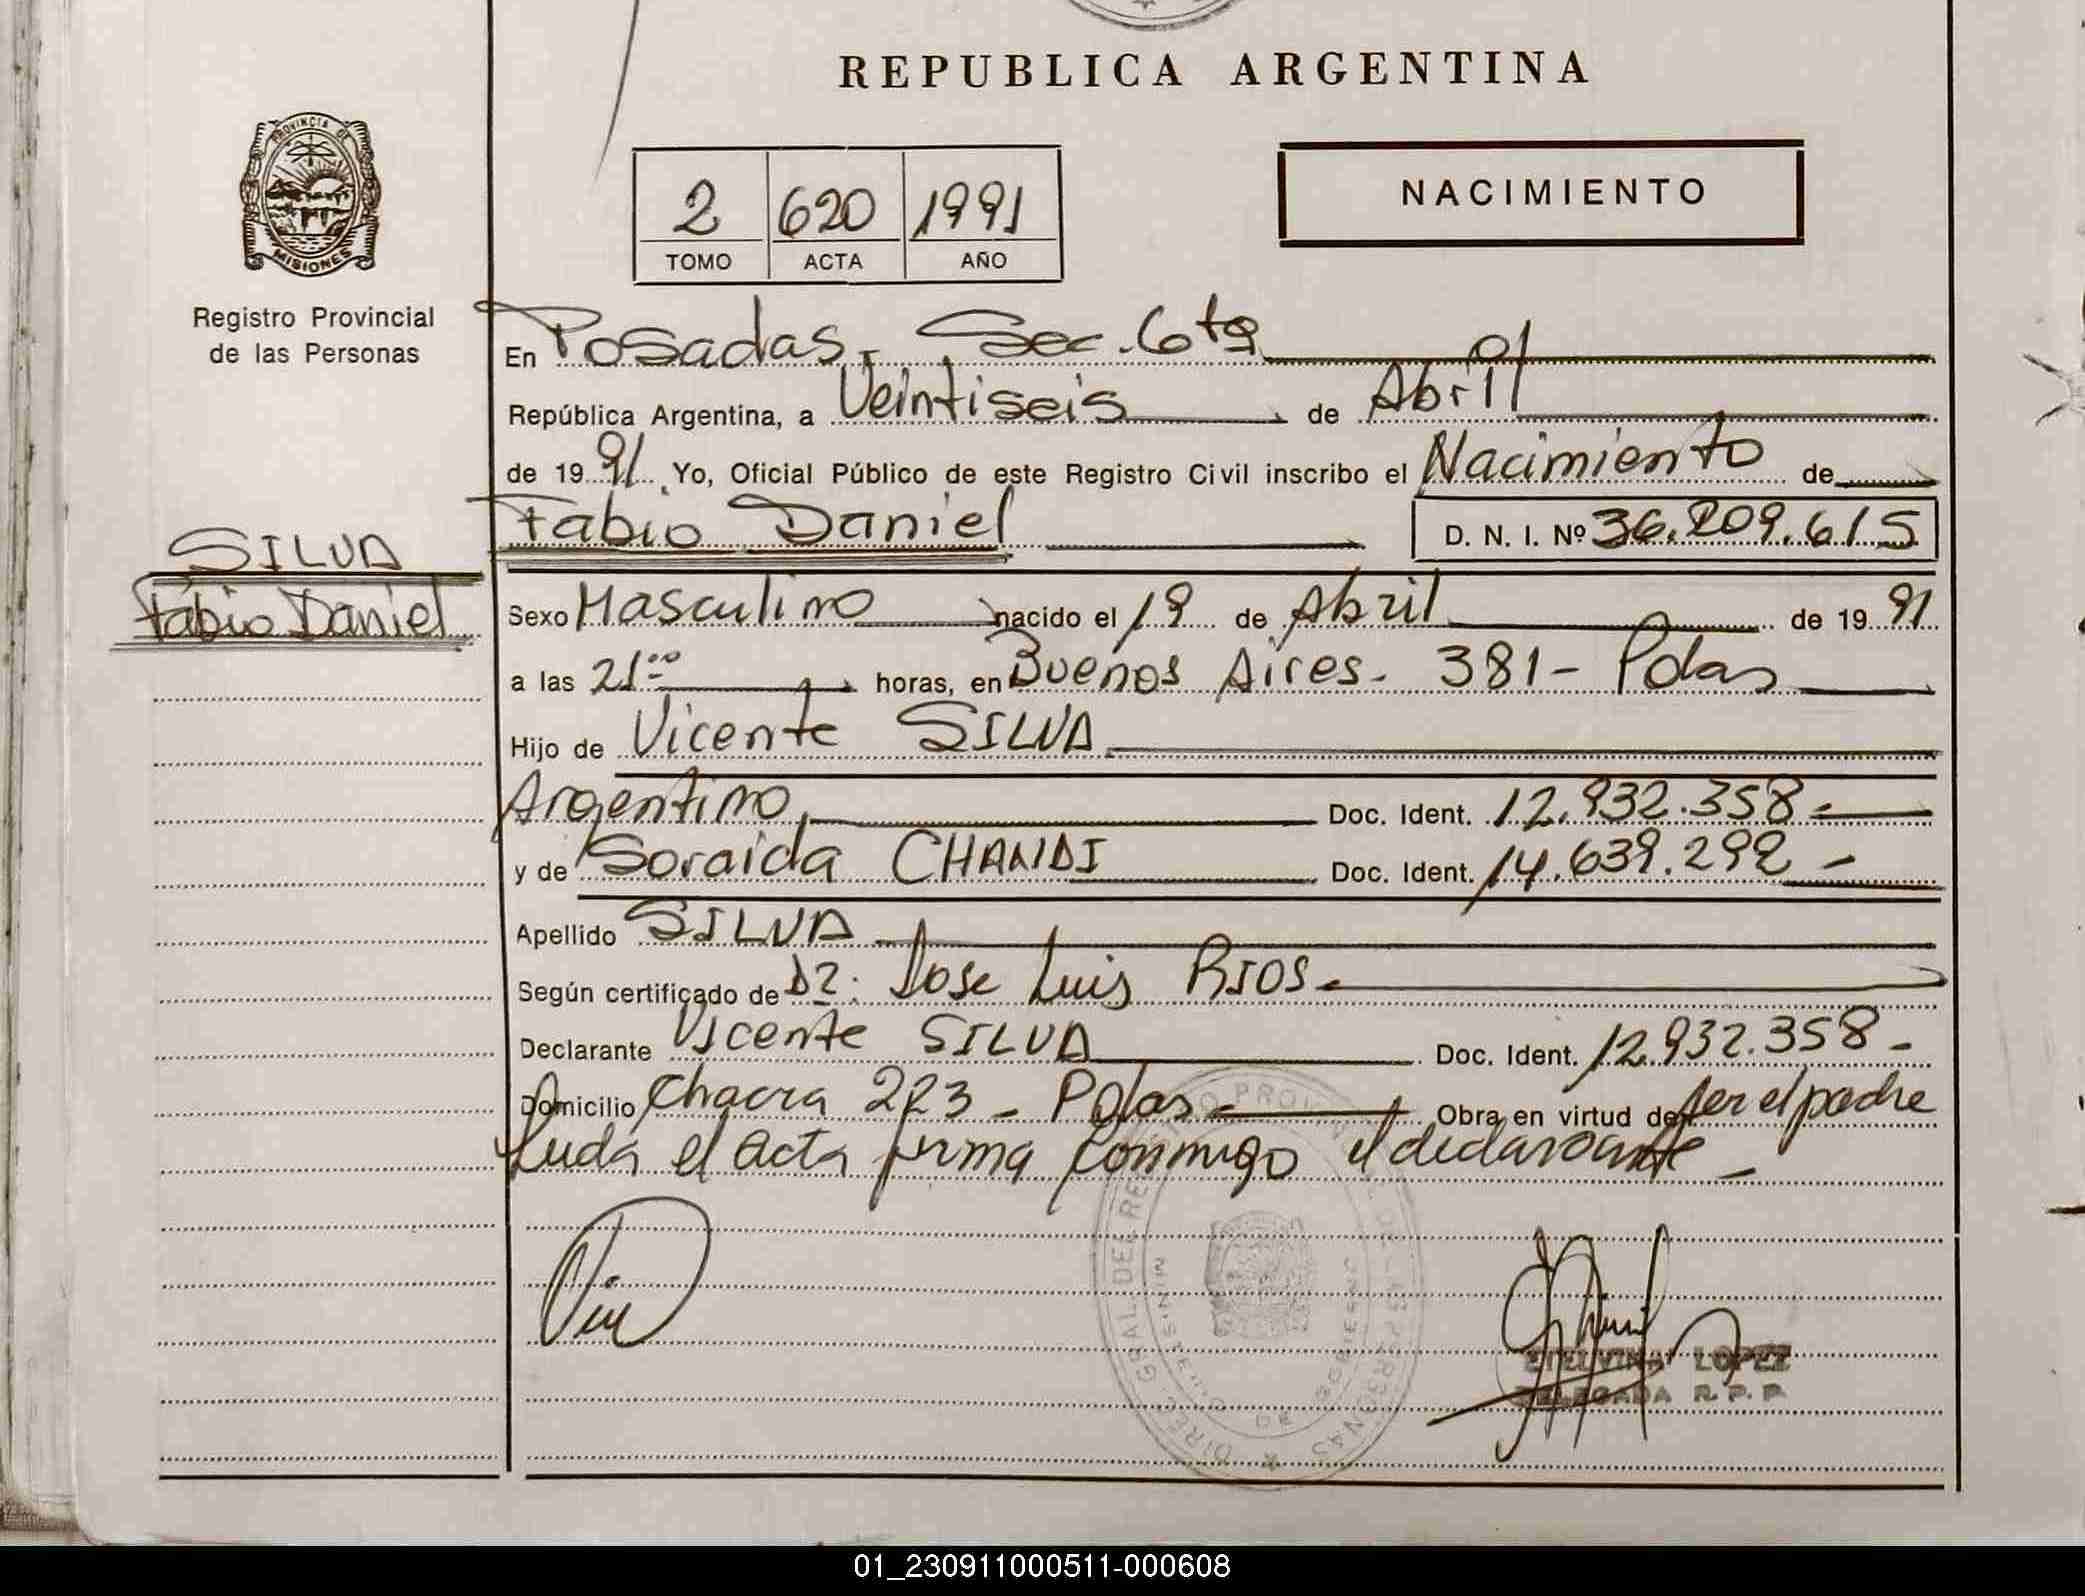 REPUBLICA ARGENTINA
PROVINCIA DE
MISIONES
Registro Provincial
de las Personas
2 620 1991
TOMO ACTA AÑO
NACIMIENTO
En Posadas, Sec. 6ta
República Argentina, a Veintiseis de Abril
de 1991 Yo, Oficial Público de este Registro Civil inscribo el Nacimiento de
Fabio Daniel D. N. I. Nº 36.209.615
SILVA
Fabio Daniel
Sexo Masculino nacido el 19 de Abril de 1991
a las 21.00 horas, en Buenos Aires - 381 - Pdas
Hijo de Vicente SILVA
Argentino Doc. Ident. 12.932.358-
y de Soraida Doc. Ident. 14.639.292 -
Apellido SILVA
Según certificado de Dr: Jose Luis RIOS-
Declarante Vicente SILVA Doc. Ident. 12.932.358-
Domicilio Chacra 223 - Pdas - Obra en virtud de ser el padre
Leida el acta firma conmigo el declarante -
DIREC. GRAL. DEL REGISTRO PROVINCIAL DE LAS PERSONAS
MINISTERIO DE GOBIERNO
ETELVINA LOPEZ
DELEGADA R. P. P.
01_230911000511-000608